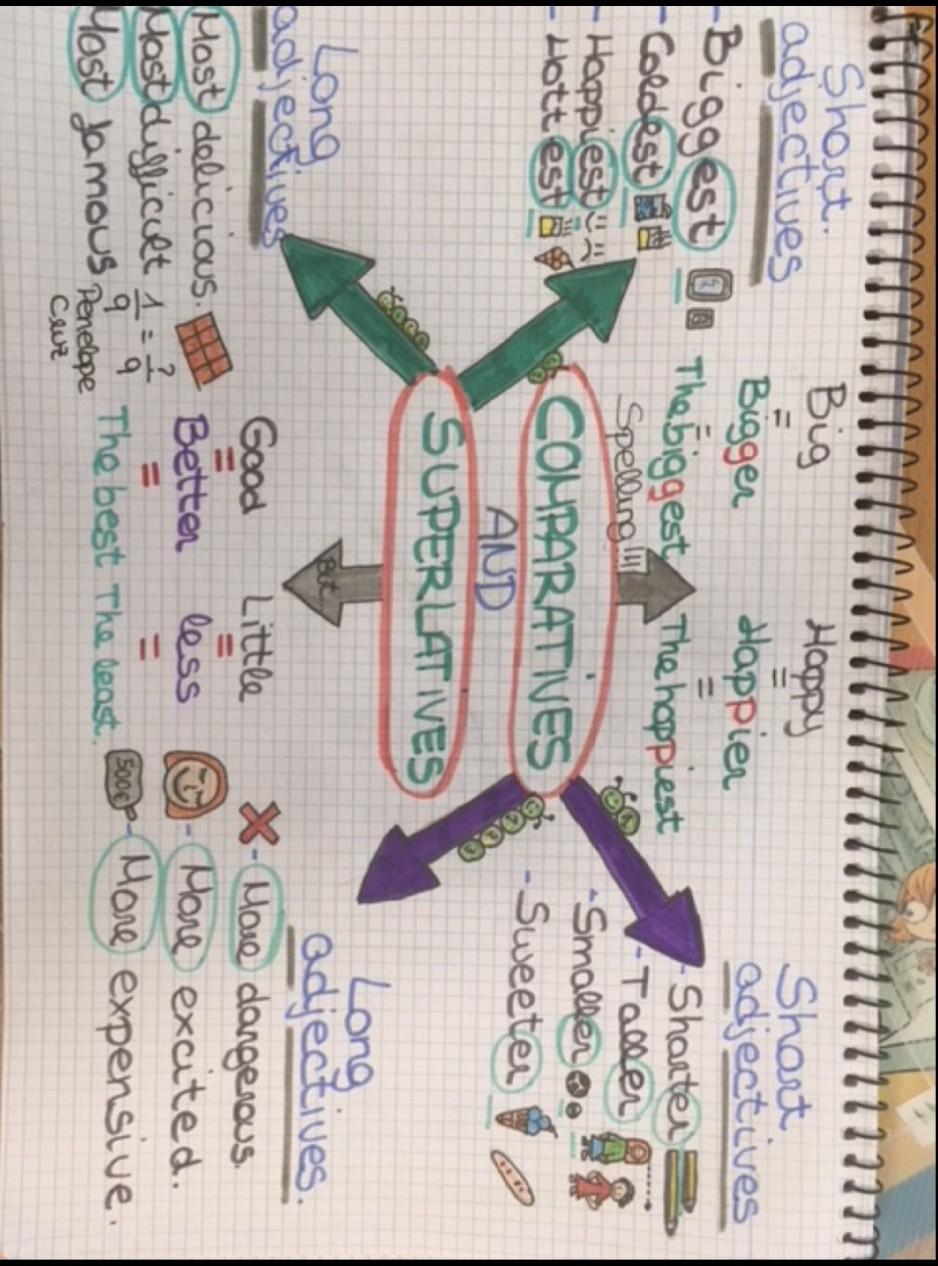 Short
adjectives
- Biggest
- Coldest
- Happiest
- Hottest
Big
=
Bigger
=
The biggest
Happy
=
Happier
=
The happiest
Spelling!!!
Short
adjectives
- Shorter
- Taller
- Smaller
- Sweeter
COMPARATIVES
AND
SUPERLATIVES
Long
adjectives
Most delicious.
Most difficult 1/9 = ?/9
Most famous Penelope
Cruz
But
Good
=
Better
=
The best
Little
=
less
=
The least.
Long
adjectives.
- More dangerous.
- More excited.
500€ - More expensive.